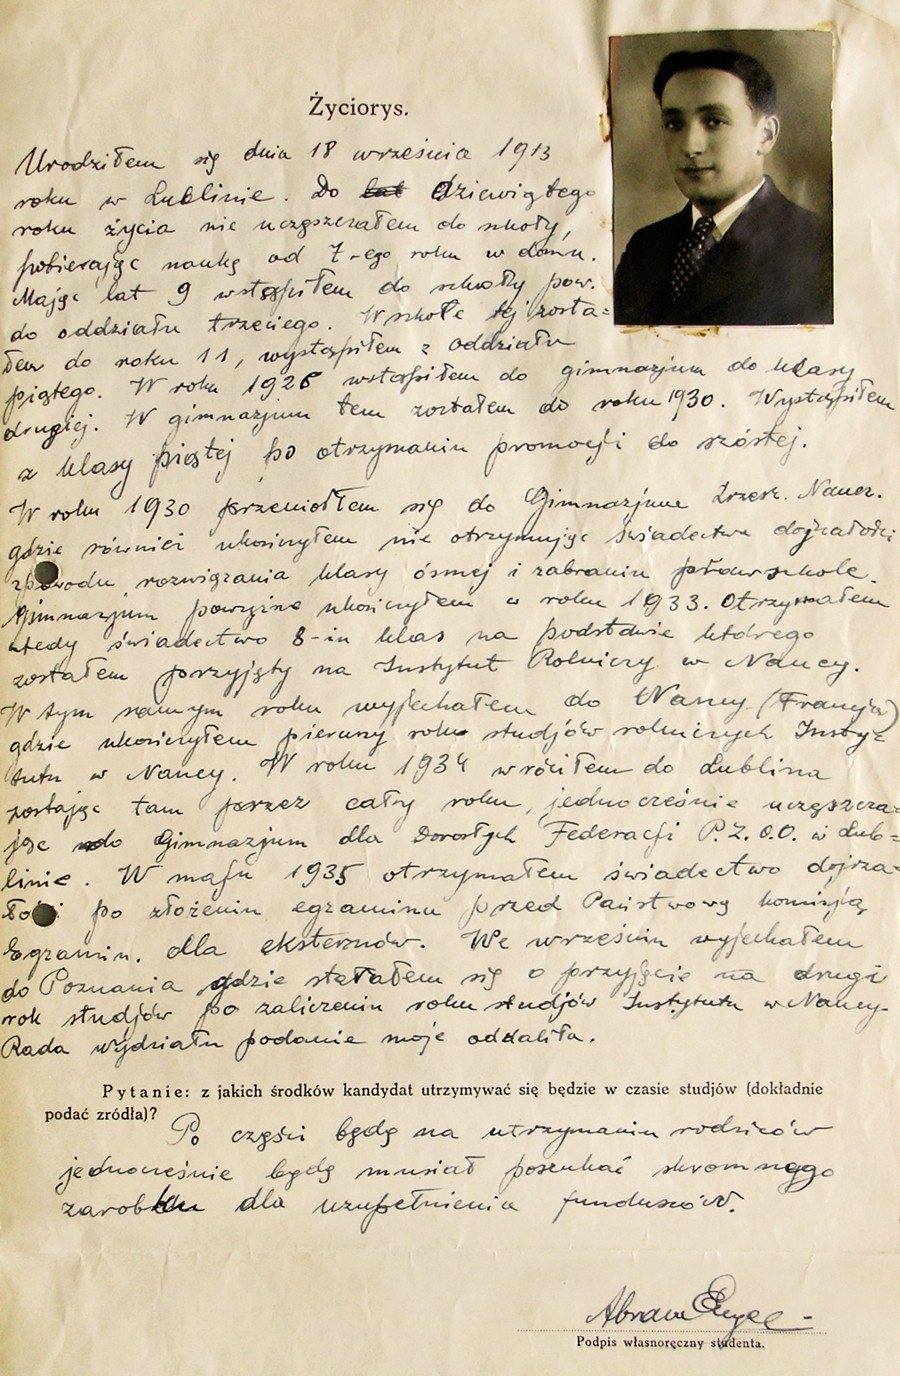 Życiorys.
Urodziłem się dnia 18 września 1913
roku w Lublinie. Do lat dziewiątego
roku życia nie uczęszczałem do szkoły,
pobierając naukę od 7-ego roku w domu.
Mając lat 9 wstąpiłem do szkoły pow.
do oddziału trzeciego. W szkole tej zosta=
łem do roku 11, wystąpiłem z oddziału
piątego. W roku 1926 wstąpiłem do gimnazjum do klasy
drugiej. W gimnazjum tem zostałem do roku 1930. Wystąpiłem
z klasy piątej po otrzymaniu promocji do szóstej.
W roku 1930 przeniosłem się do Gimnazjum Zrzesz. Naucz.
gdzie również ukończyłem nie otrzymując świadectwa dojrzałości
z powodu rozwiązania klasy ósmej i zabraniu praw szkole.
Gimnazjum powyższe ukończyłem w roku 1933. Otrzymałem
wtedy świadectwo 8-iu klas na podstawie którego
zostałem przyjęty na Instytut Rolniczy w Nancy.
W tym samym roku wyjechałem do Nancy (Francja)
gdzie ukończyłem pierwszy rok studjów rolniczych Insty=
tutu w Nancy. W roku 1934 wróciłem do Lublina
zostając tam przez cały rok, jednocześnie uczęszcza=
jąc do Gimnazjum dla Dorosłych Federacji P.Z.O.O. w Lub=
linie. W maju 1935 otrzymałem świadectwo dojrza=
łości po złożeniu egzaminu przed Państwową komisją
Egzamin. dla eksternów. We wrześniu wyjechałem
do Poznania gdzie starałem się o przyjęcie na drugi
rok studjów po zaliczeniu roku studjów Instytutu w Nancy.
Rada wydziału podanie moje oddaliła.
Pytanie: z jakich środków kandydat utrzymywać się będzie w czasie studjów (dokładnie
podać zródła)?
Po części będę na utrzymaniu rodziców
jednocześnie będę musiał poszukać skromnego
zarobku dla uzupełnienia funduszów.
Abram Engel
Podpis własnoręczny studenta.